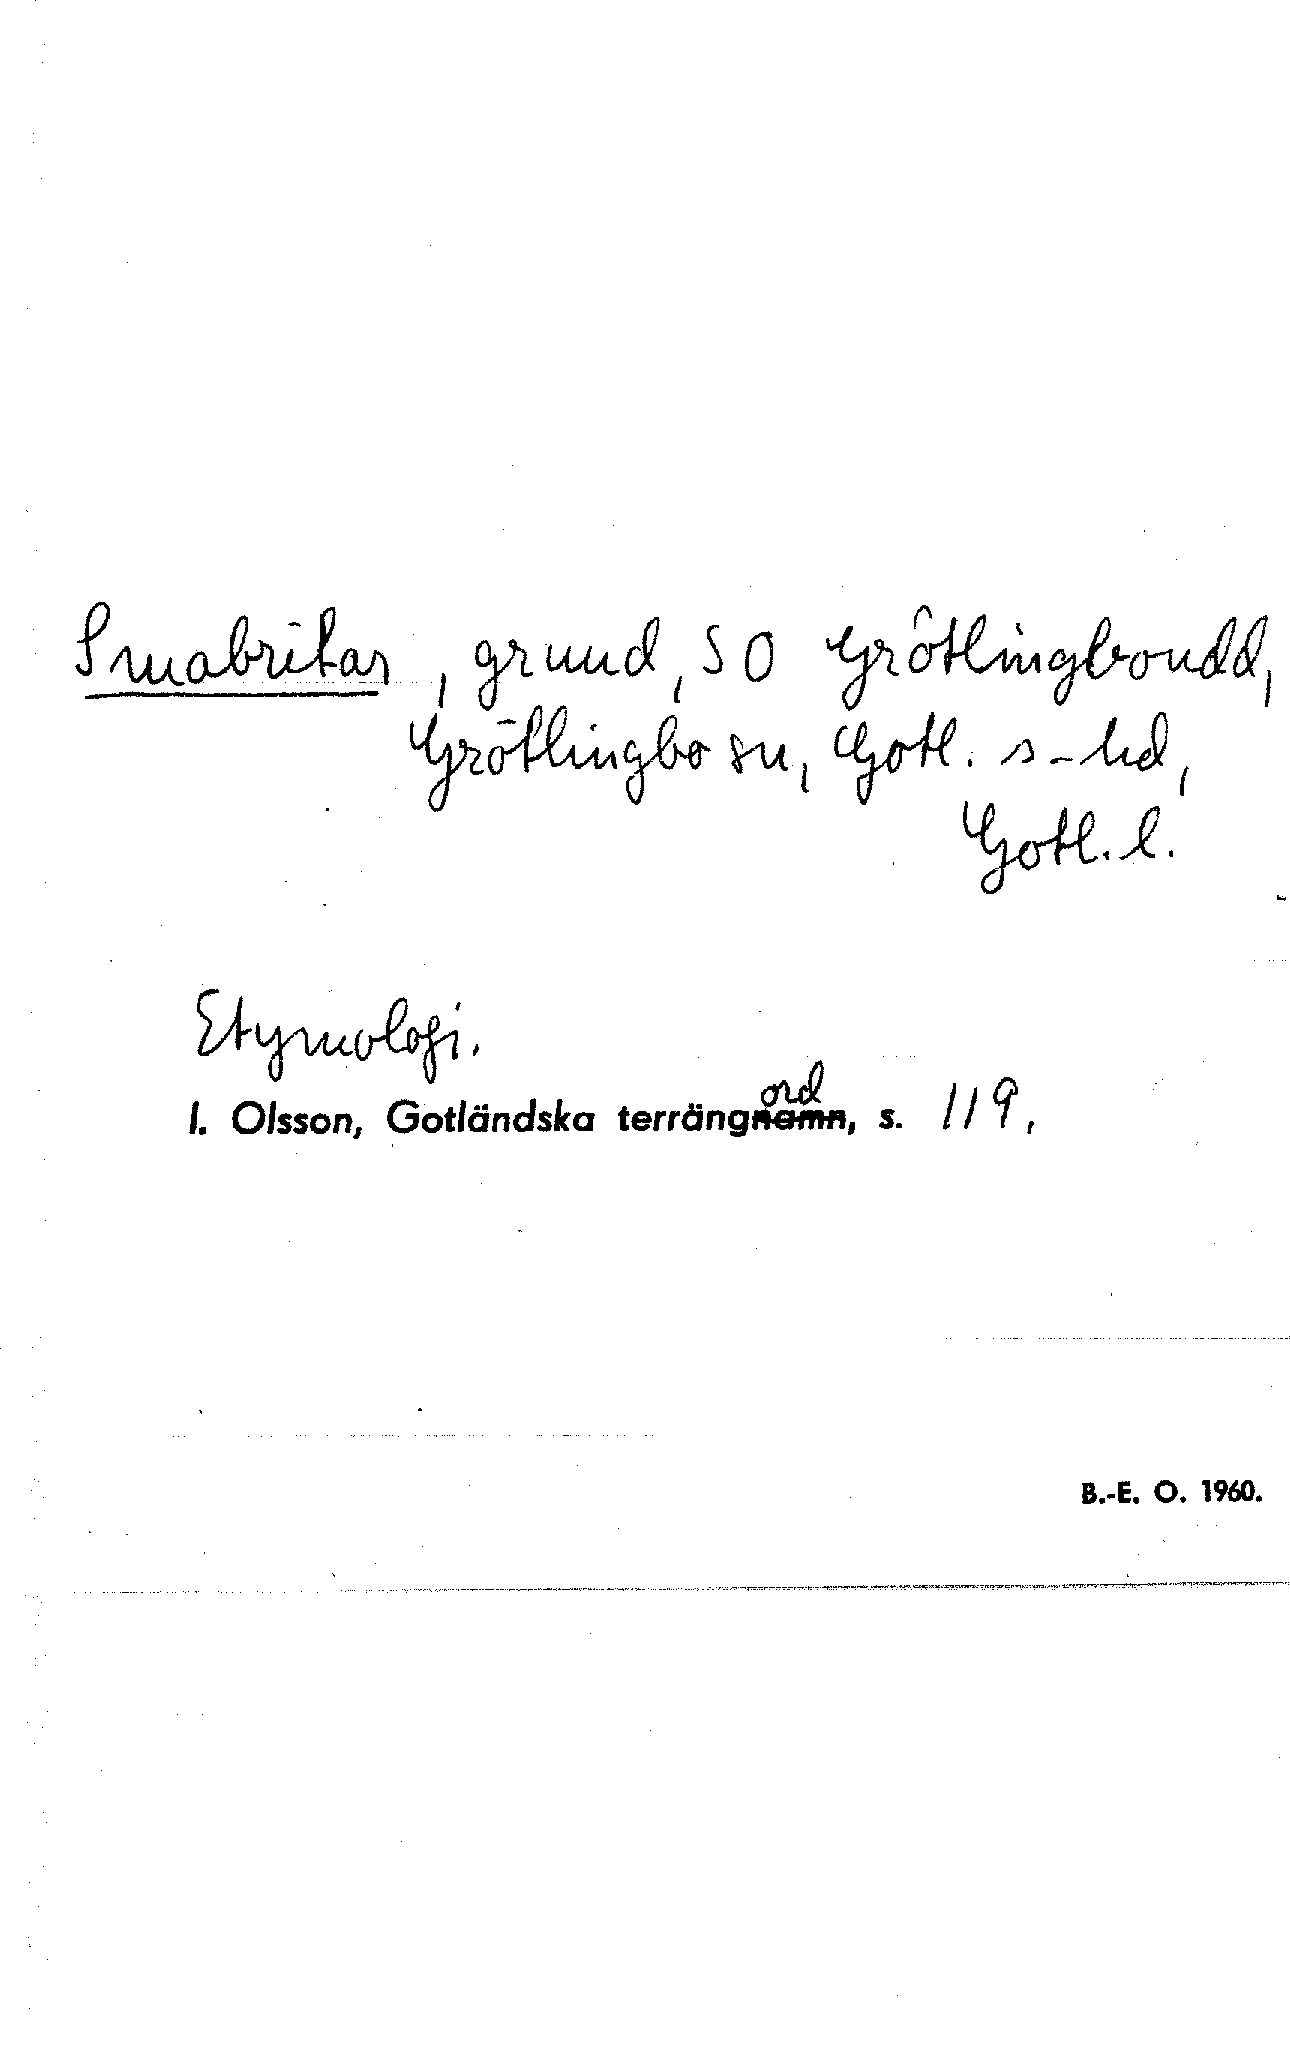 Smabritar, grund, SO Grötlingboudd,
Grötlingbo sn, Gotl. s-hd,
Gotl. l.
Etymologi.
ord
I. Olsson, Gotländska terrängnamn, s. 119.
B.-E. O. 1960.